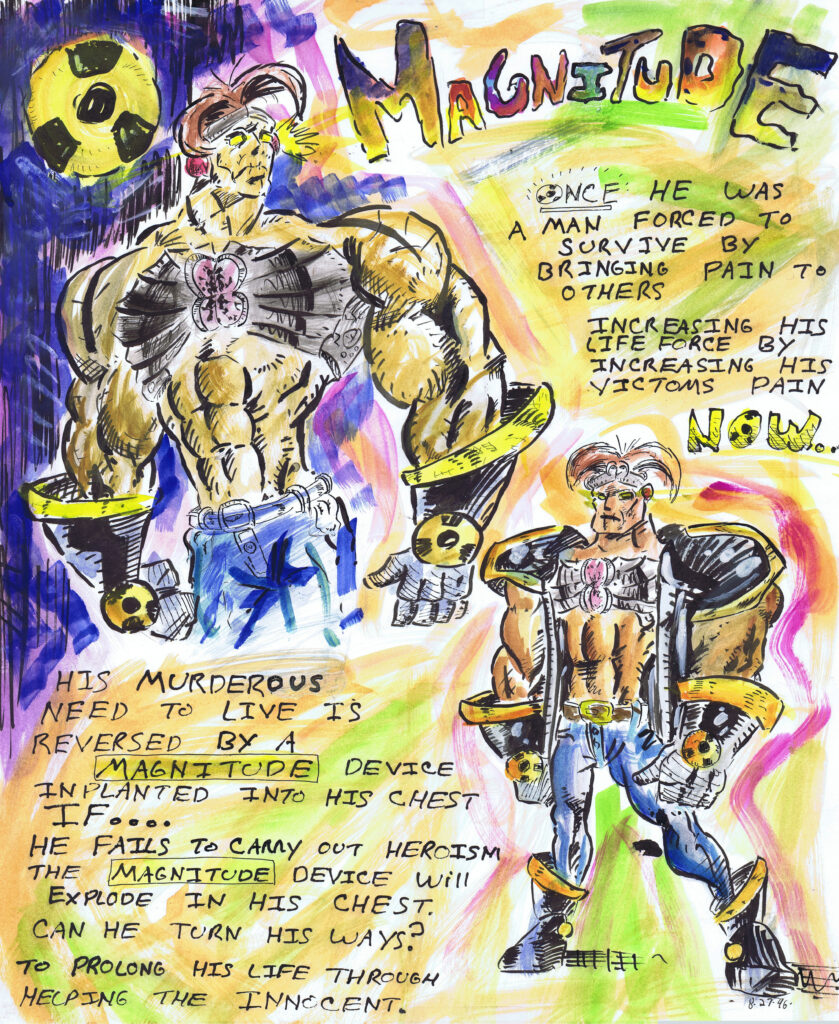 MAGNITUDE
ONCE HE WAS
A MAN FORCED TO
SURVIVE BY
BRINGING PAIN TO
OTHERS
INCREASING HIS
LIFE FORCE BY
INCREASING HIS
VICTOMS PAIN
NOW..
HIS MURDEROUS
NEED TO LIVE IS
REVERSED BY A
MAGNITUDE DEVICE
INPLANTED INTO HIS CHEST
IF....
HE FAILS TO CARRY OUT HEROISM
THE MAGNITUDE DEVICE WILL
EXPLODE IN HIS CHEST.
CAN HE TURN HIS WAYS?
TO PROLONG HIS LIFE THROUGH
HELPING THE INNOCENT.
8.27.96.